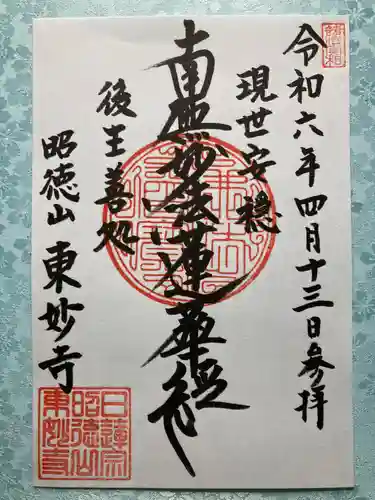 令和六年四月十三日参拝
現世安穏
南無妙法蓮華経
後生善処
昭徳山 東妙寺
日蓮宗
昭徳山
東妙寺